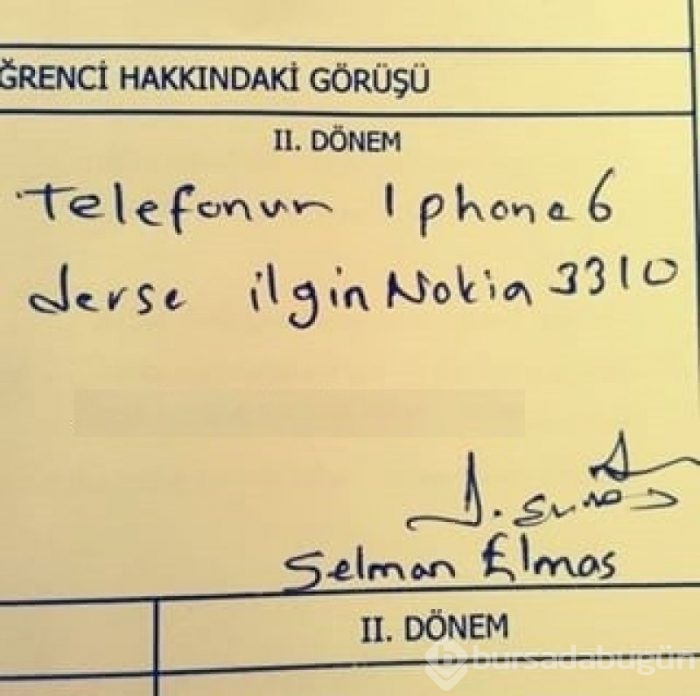 ĞRENCİ HAKKINDAKİ GÖRÜŞÜ
II. DÖNEM
Telefonun Iphone 6
derse ilgin Nokia 3310
Selman Elmas
II. DÖNEM
bursadabugün